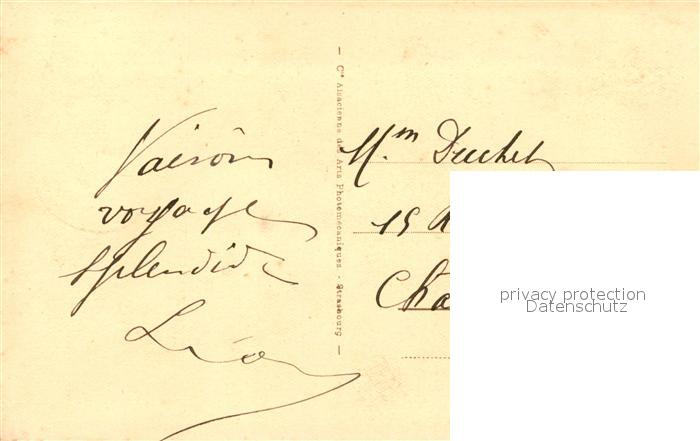 voyage
splendide
Léon
— Cie Alsacienne des Arts Photomécaniques - Strasbourg —
Mm Duchet
15 R
Cha
privacy protection
Datenschutz